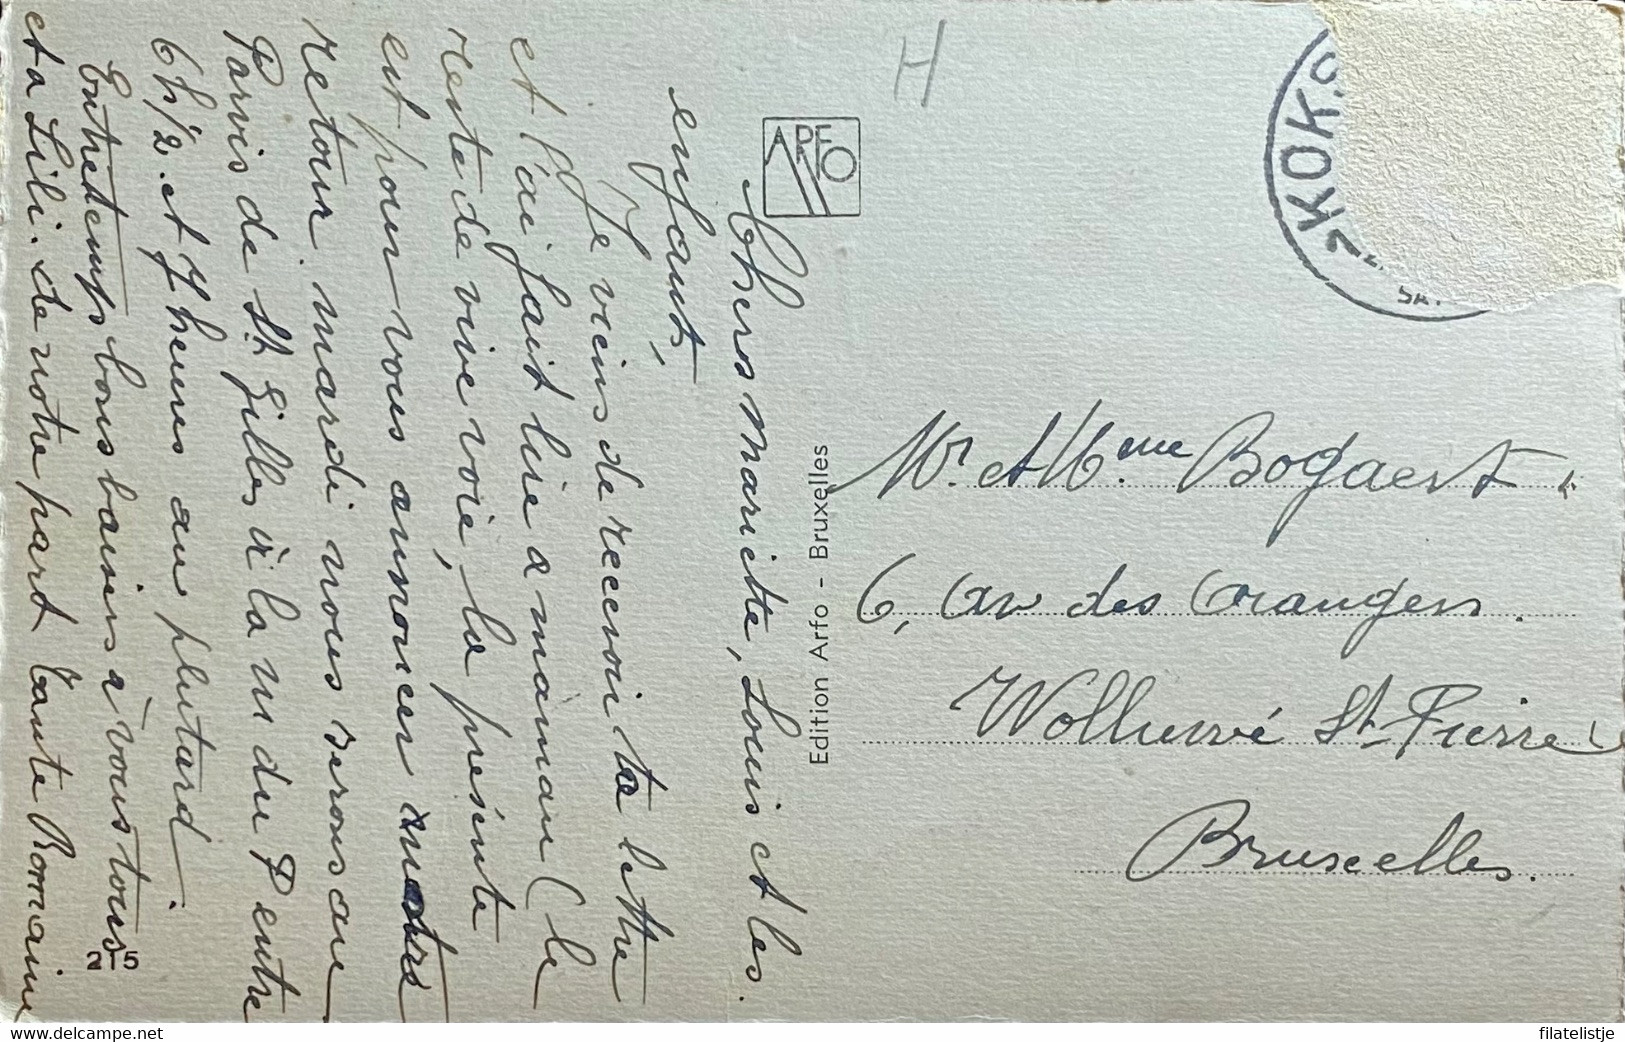 Chers Mariette, Louis et les
enfants,
Je viens de recevoir ta lettre
et l'ai fait lire a maman (le
reste de vive voie, la présente
est pour vous annoncer notre
retour mardi nous serons au
Parvis de St. Gilles à la m du P entre
6h 1/2. et 7 heures au plutard.
Entretemps bons baisers à vous tous
et a Lili. de notre part Tante Romaine
215
ARFO
Edition Arfo - Bruxelles
H
KOK
Mr. et Mme Bogaert
6, av des Orangers.
Wolluwé St-Pierre
Bruxelles.
delcampe.net
filatelistje